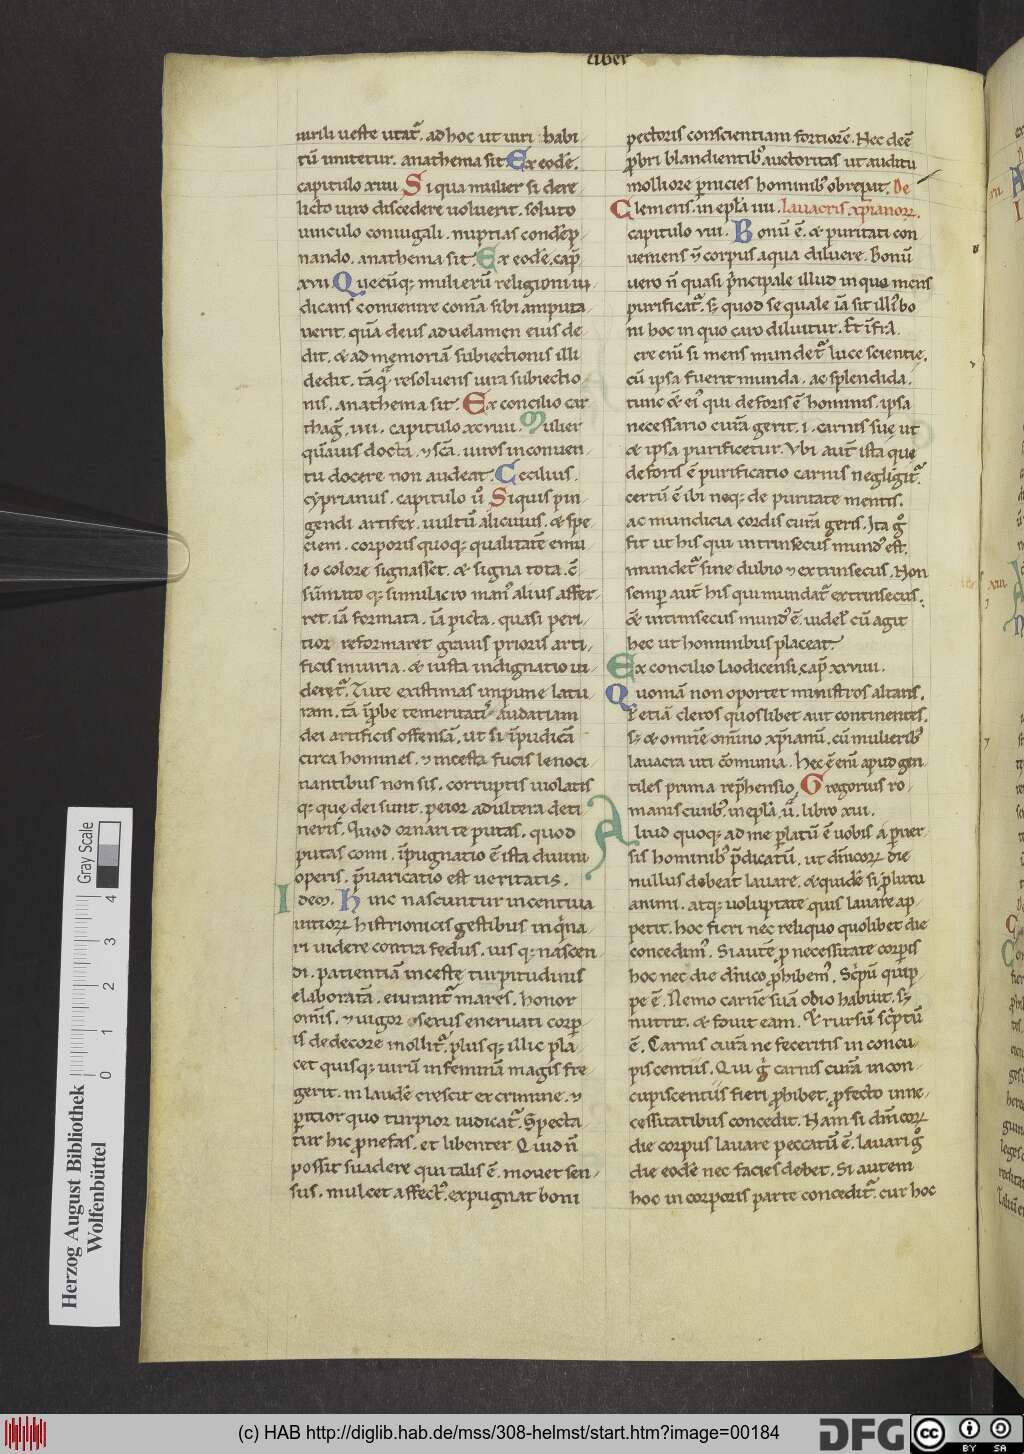 liber
uirili ueste utat᷑. ad hoc ut uiri habi
tū imitetur. anathema sit. Ex eodē.
capitulo xiiii. Si qua mulier si dere
licto uiro discedere uoluerit. soluto
uinculo coniugali. nuptias condēp
nando. anathema sit. Ex eodē. cap̄
xvii. Quecūq; mulierū religioni iu
dicans conuenire comā sibi amputa
uerit. quā deus ad uelamen eius de
dit. & ad memoriā subiectionis illi
dedit. tāq̄ resoluens iura subiectio
nis. anathema sit. Ex concilio car
thaḡ. iiii. capitulo xcviiii. Mulier
quāuis docta. & sc̄a. uiros in conuen
tu docere non audeat. Cecilius.
cyprianus. capitulo ů. Si quis pin
gendi artifex. uultū alicuius. & spe
ciem. corporis quoq; qualitatē emu
lo colore signasset. & signa tota. ē
sūmato q; simulacro man᾽ alius affer
ret. iā formata. iā picta. quasi peri
tior reformaret grauis prioris arti
ficis iniuria. & iusta indignatio ui
deret᷑. Tute existimas impune latu
ram. tā īprobe temeritatis audatiam
dei artificis offensā. ut si īpudicā
circa homines. & incesta fucis lenoci
nantibus non sis. corruptis uiolatis
q; que dei sunt. peior adultera deti
neris. Quod ornari te putas. quod
putas comi. īpugnatio ē ista diuini
operis. p̄uaricatio est ueritatis.
Idem. Hinc nascuntur incentiua
uitiorꝝ histrionicis gestibus inq̇na
ri uidere contra fedus. ius q; nascen
di. patientiā inceste turpitudinis
elaboratā. euirant᷑ mares. honor
omīs. & uigor sexus eneruati corp
is dedecore mollit᷑. plus q; illic pla
cet quisq; uirū in feminā magis fre
gerit. in laudē crescit ex crimine. &
peritior quo turpior iudicat᷑. Specta
tur hic p̱ nefas. et libenter. Quid n̄
possit suadere qui talis ē. mouet sen
sus. mulcet affect᾽. expugnat boni
pectoris conscientiam fortiorē. Nec deē
p̱bri blandientib᾽ auctoritas ut auditu
molliore pernicies hominib᾽ obrepat. De
Clemens. in epl̄a iiii. lauacris xp̄ianorꝝ.
capitulo viii. Bonū ē. & puritati con
ueniens & corpus aqua diluere. Bonū
uero n̄ quasi p̱ncipale illud in quo mens
purificat᷑. sꝫ quod sequale iā sit illi᾽ bo
ni hoc in quo caro diluitur. Et īfra.
cre eni si mens mundet᷑ luce scientie.
cū ipsa fuerit munda. ac splendida.
tunc ōe ei᾽ qui deforis ē hominis. ipsa
necessario curā gerit. i. carnis sue ut
& ipsa purificetur. Vbi aut̄ ista que
deforis ē purificatio carnis negligit᷑.
certū ē ibi neq; de puritate mentis.
ac mundicia cordis curā geris. Ita g̊
fit ut his qui intrinsecus mund᾽ est.
mundet᷑ sine dubio & extrinsecus. Non
semp aut̄ his qui mundat᷑ extrinsecus.
& intrinsecus mund᾽ ē. uidel᾽ cū agit
hec ut hominibus placeat.
Ex concilio laodicensi. cap̄ xxviiii.
Quoniā non oportet ministros altaris.
l etiā cleros quoslibet aut continentes.
sꝫ & omnē omīno xp̄ianū. cū mulierib᾽
lauacra uti cōmunia. Hec ē eni apud gen
tiles prima rep̱hensio. Gregorius ro
manis ciuib᾽. in epl̄a. ii. libro xiii.
Aliud quoq; ad me p̱latū ē uobis a p̱uer
sis hominib᾽ p̄dicatū. ut dn̄icorꝝ die
nullus debeat lauare. & quidē si p̱ luxu
animi. atq; uoluptate quis lauare ap
petit. hoc fieri nec reliquo quolibet die
concedim᾽. Si autē p̱ necessitate corp̱is
hoc nec die dn̄ico p̱hibem᾽. Sc̱ptū quip
pe ē. Nemo carnē suā odio habuit. sꝫ
nutrit. & fouit eam. Et rursū sc̱ptū
ē. Carnis curā ne feceritis in concu
piscentiis. Qui g̊ carnis curā in con
cupiscentiis fieri p̱hibet. p̱fecto in ne
cessitatibus concedit. Nam si dn̄icorꝝ
die corpus lauare peccatū ē. lauari g̊
die eodē nec facies debet. Si autem
hoc in corporis parte concedit᷑. cur hoc
Gray Scale
Herzog August Bibliothek
Wolfenbüttel
0 1 2 3 4
(c) HAB http://diglib.hab.de/mss/308-helmst/start.htm?image=00184
DFG
cc BY SA